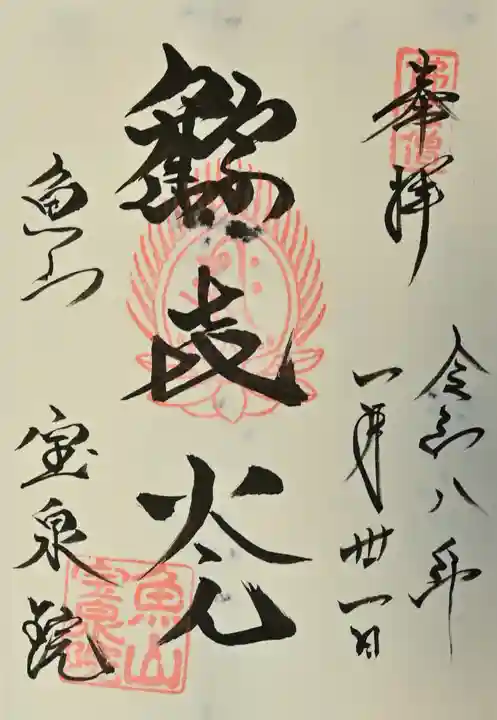 奉拝
令和八年
一月卅一日
光
魚山
宝泉院
魚山
宝泉院